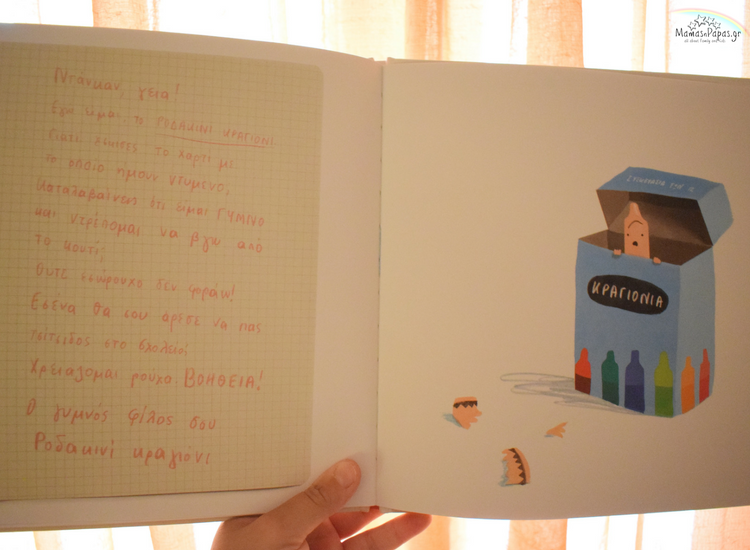 Ντάνκαν, γεια!
Εγώ είμαι το ΡΟΔΑΚΙΝΙ ΚΡΑΓΙΟΝΙ
Γιατί έσκισες το χαρτί με
το οποίο ήμουν ντυμένο;
Καταλαβαίνεις ότι είμαι ΓΥΜΝΟ
και ντρέπομαι να βγω από
το κουτί;
Ούτε εσώρουχο δεν φοράω!
Εσένα θα σου άρεσε να πας
τσίτσιδος στο σχολείο;
Χρειάζομαι ρούχα. ΒΟΗΘΕΙΑ!
Ο γυμνός φίλος σου
Ροδακινί κραγιόνι
ΚΡΑΓΙΟΝΙΑ
MamasnPapas.gr